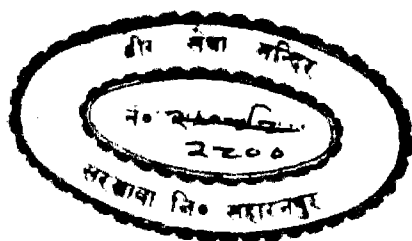 वीर सेवा मन्दिर
नं०
2200
सरसावा जि० सहारनपुर